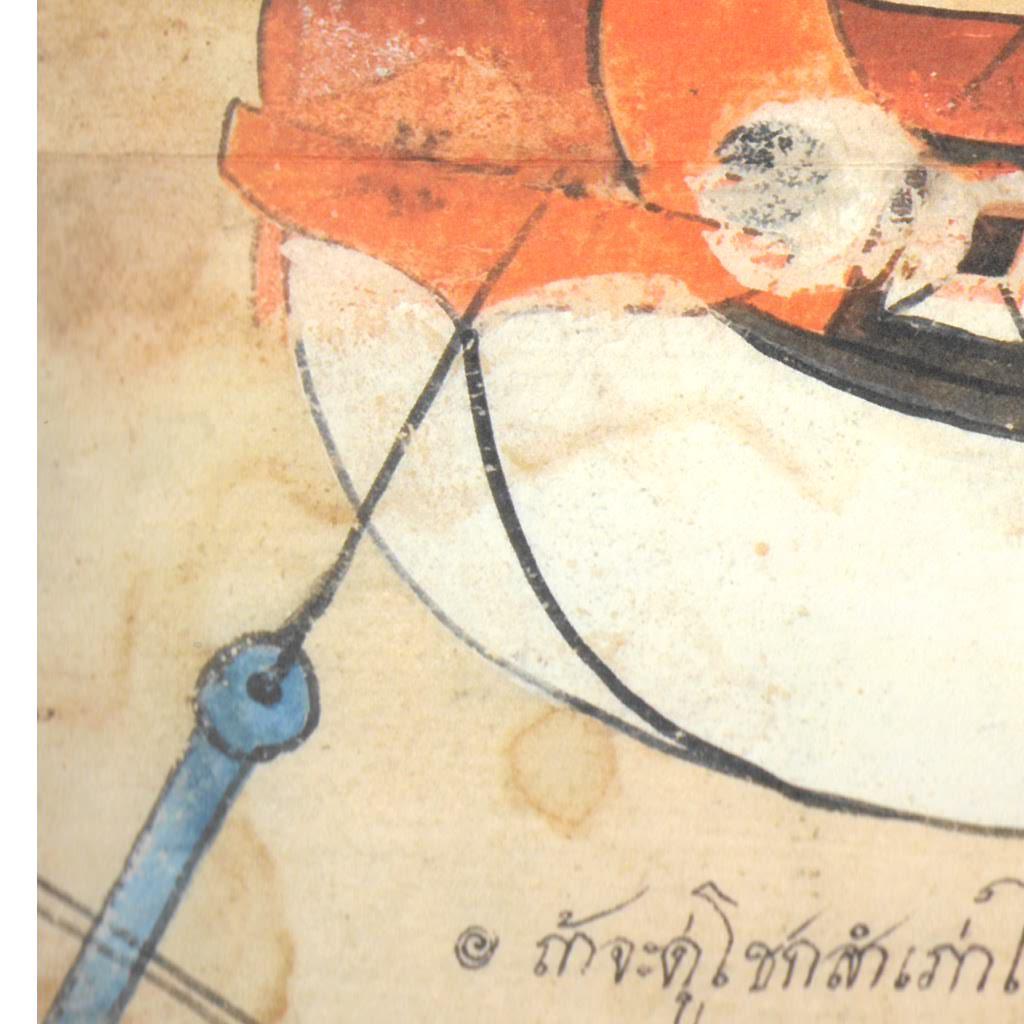 ๏ ถ้าจะดูโชกสำเภา